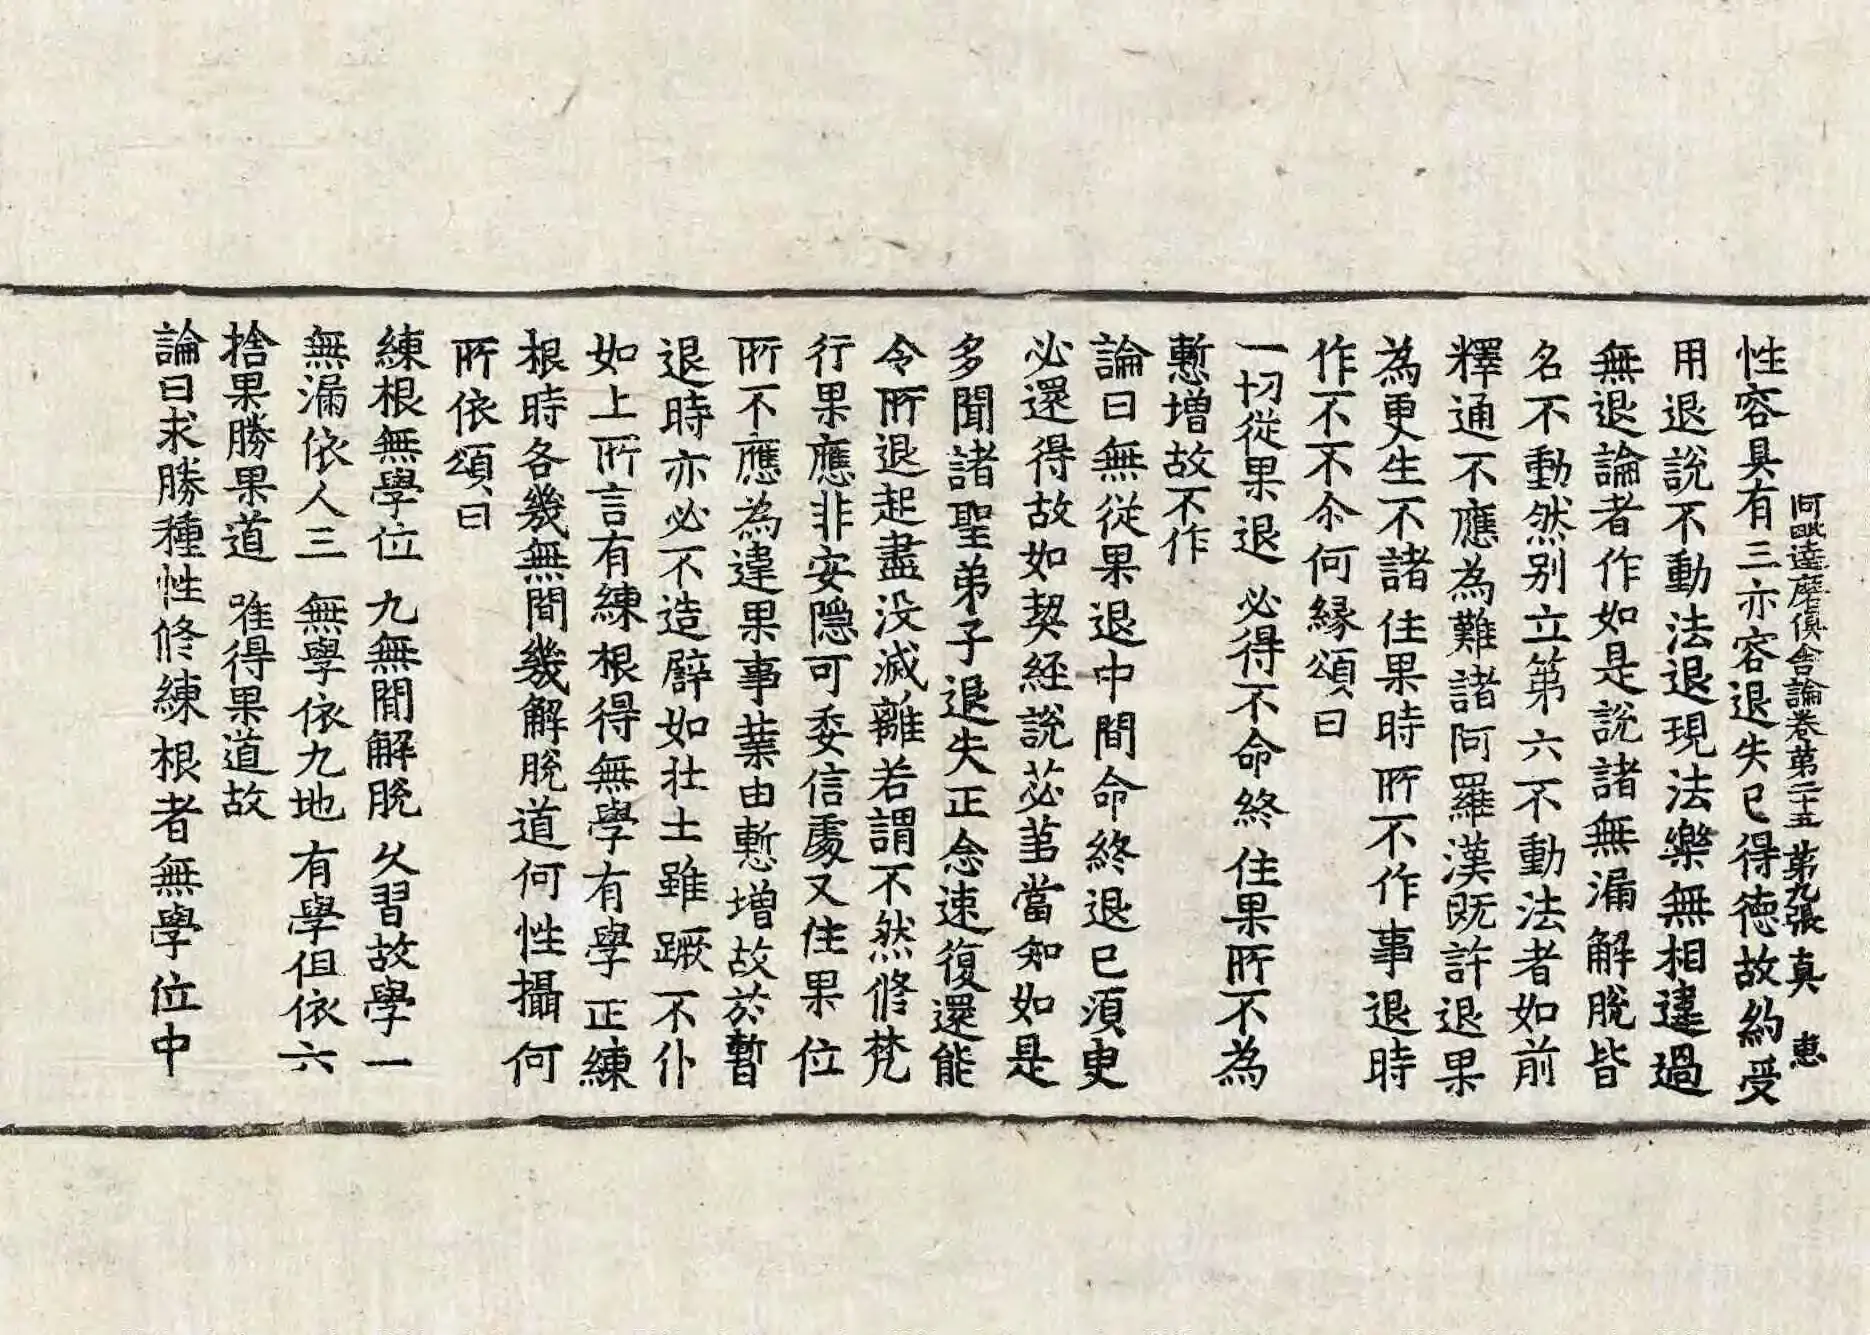 阿毗達磨俱舍論卷第二十五 第九張 真 惠
性容具有三亦容退失已得德故約受
用退說不動法退現法樂無相違過
無退論者作如是說諸無漏解脫皆
名不動然別立第六不動法者如前
釋通不應為難諸阿羅漢既許退果
為更生不諸住果時所不作事退時
作不不尒何緣頌曰
一切從果退 必得不命終 住果所不為
慙增故不作
論曰無從果退中間命終退已須臾
必還得故如契經說苾芻當知如是
多聞諸聖弟子退失正念速復還能
令所退起盡没滅離若謂不然修梵
行果應非安隱可委信處又住果位
所不應為違果事業由慙增故於暫
退時亦必不造辟如壯士雖蹶不仆
如上所言有練根得無學有學正練
根時各幾無間幾解脫道何性攝何
所依頌曰
練根無學位 九無間解脫 久習故學一
無漏依人三 無學依九地 有學但依六
捨果勝果道 唯得果道故
論曰求勝種性修練根者無學位中